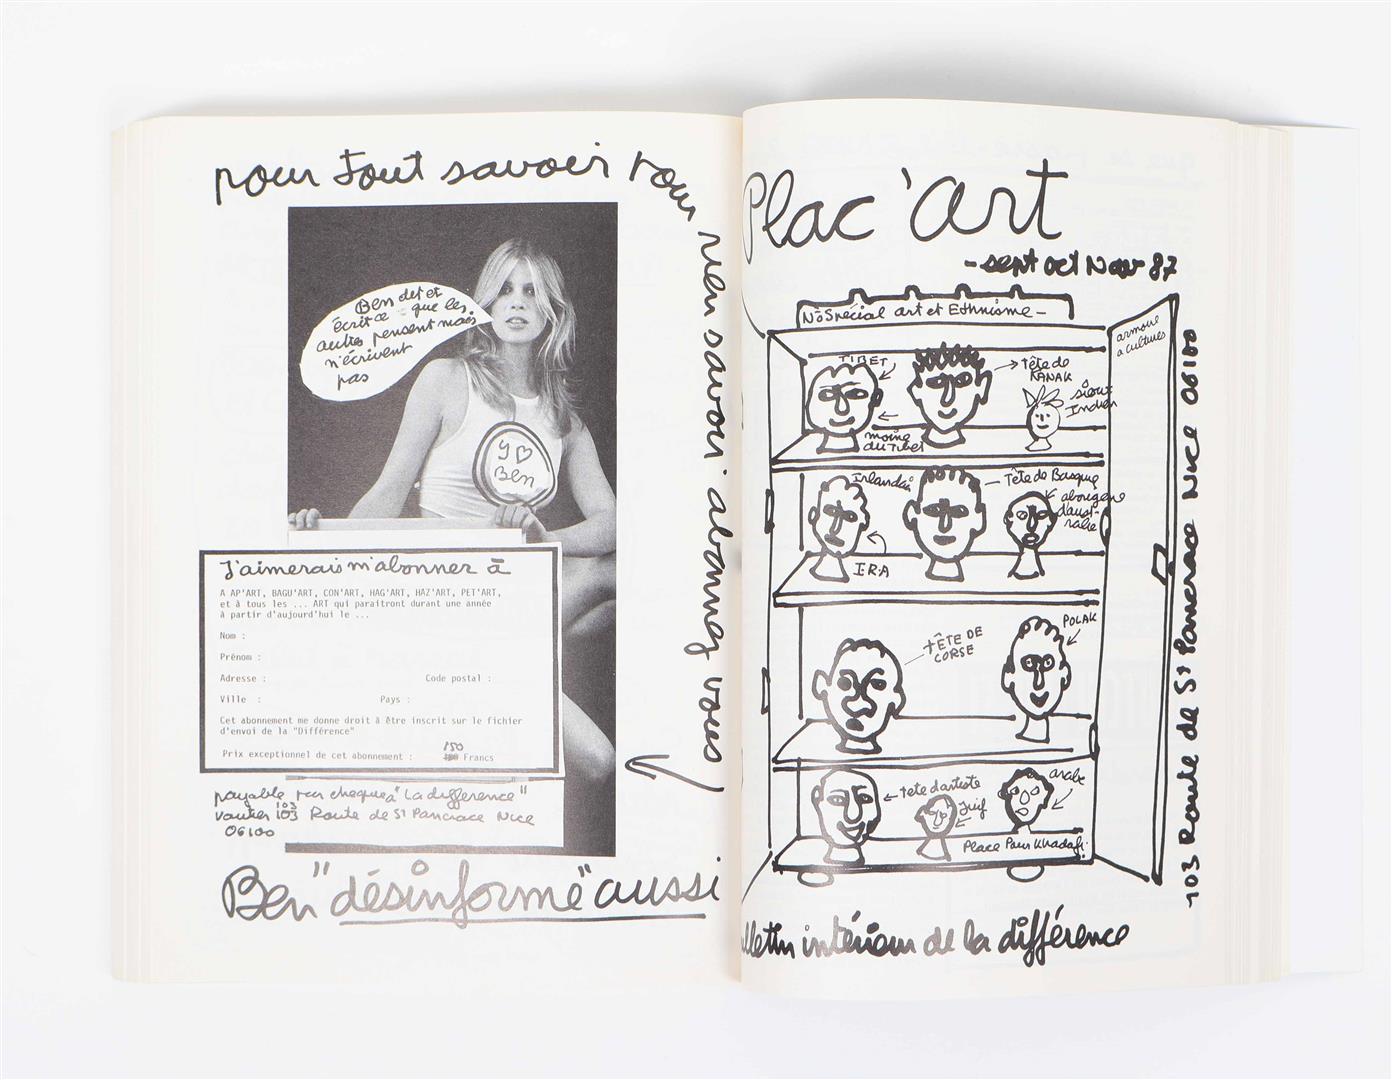 pour tout savoir pour rien savoir abonnez vous
Ben dit et
écrit ce que les
autres pensent mais
n'écrivent
pas
Ben
J'aimerais m'abonner à
A AP'ART, BAGU'ART, CON'ART, HAG'ART, HAZ'ART, PET'ART,
et à tous les ... ART qui paraitront durant une année
à partir d'aujourd'hui le ...
Nom :
Prénom :
Adresse : Code postal :
Ville : Pays :
Cet abonnement me donne droit à être inscrit sur le fichier
d'envoi de la "Différence"
Prix exceptionnel de cet abonnement : 150 Francs
payable par cheque à "La difference"
Vautier 103 103 Route de St Pancrace Nice
06100
Ben "désinforme" aussi
Plac'art
- sept oct Nov 87
No Spécial art et Ethnisme -
armoire
a cultures
TIBET
tête de
KANAK
sioux
Indien
moine
du Tibet
Irlandais
Tête de Basque
aborigene
d'aust-
ralie
I.R.A
TÊTE DE
CORSE
POLAK
tête d'artiste
Juif
arabe
Place Pour Khadafi
103 Route de St Pancrace Nice 06100
lletin intérieur de la différence